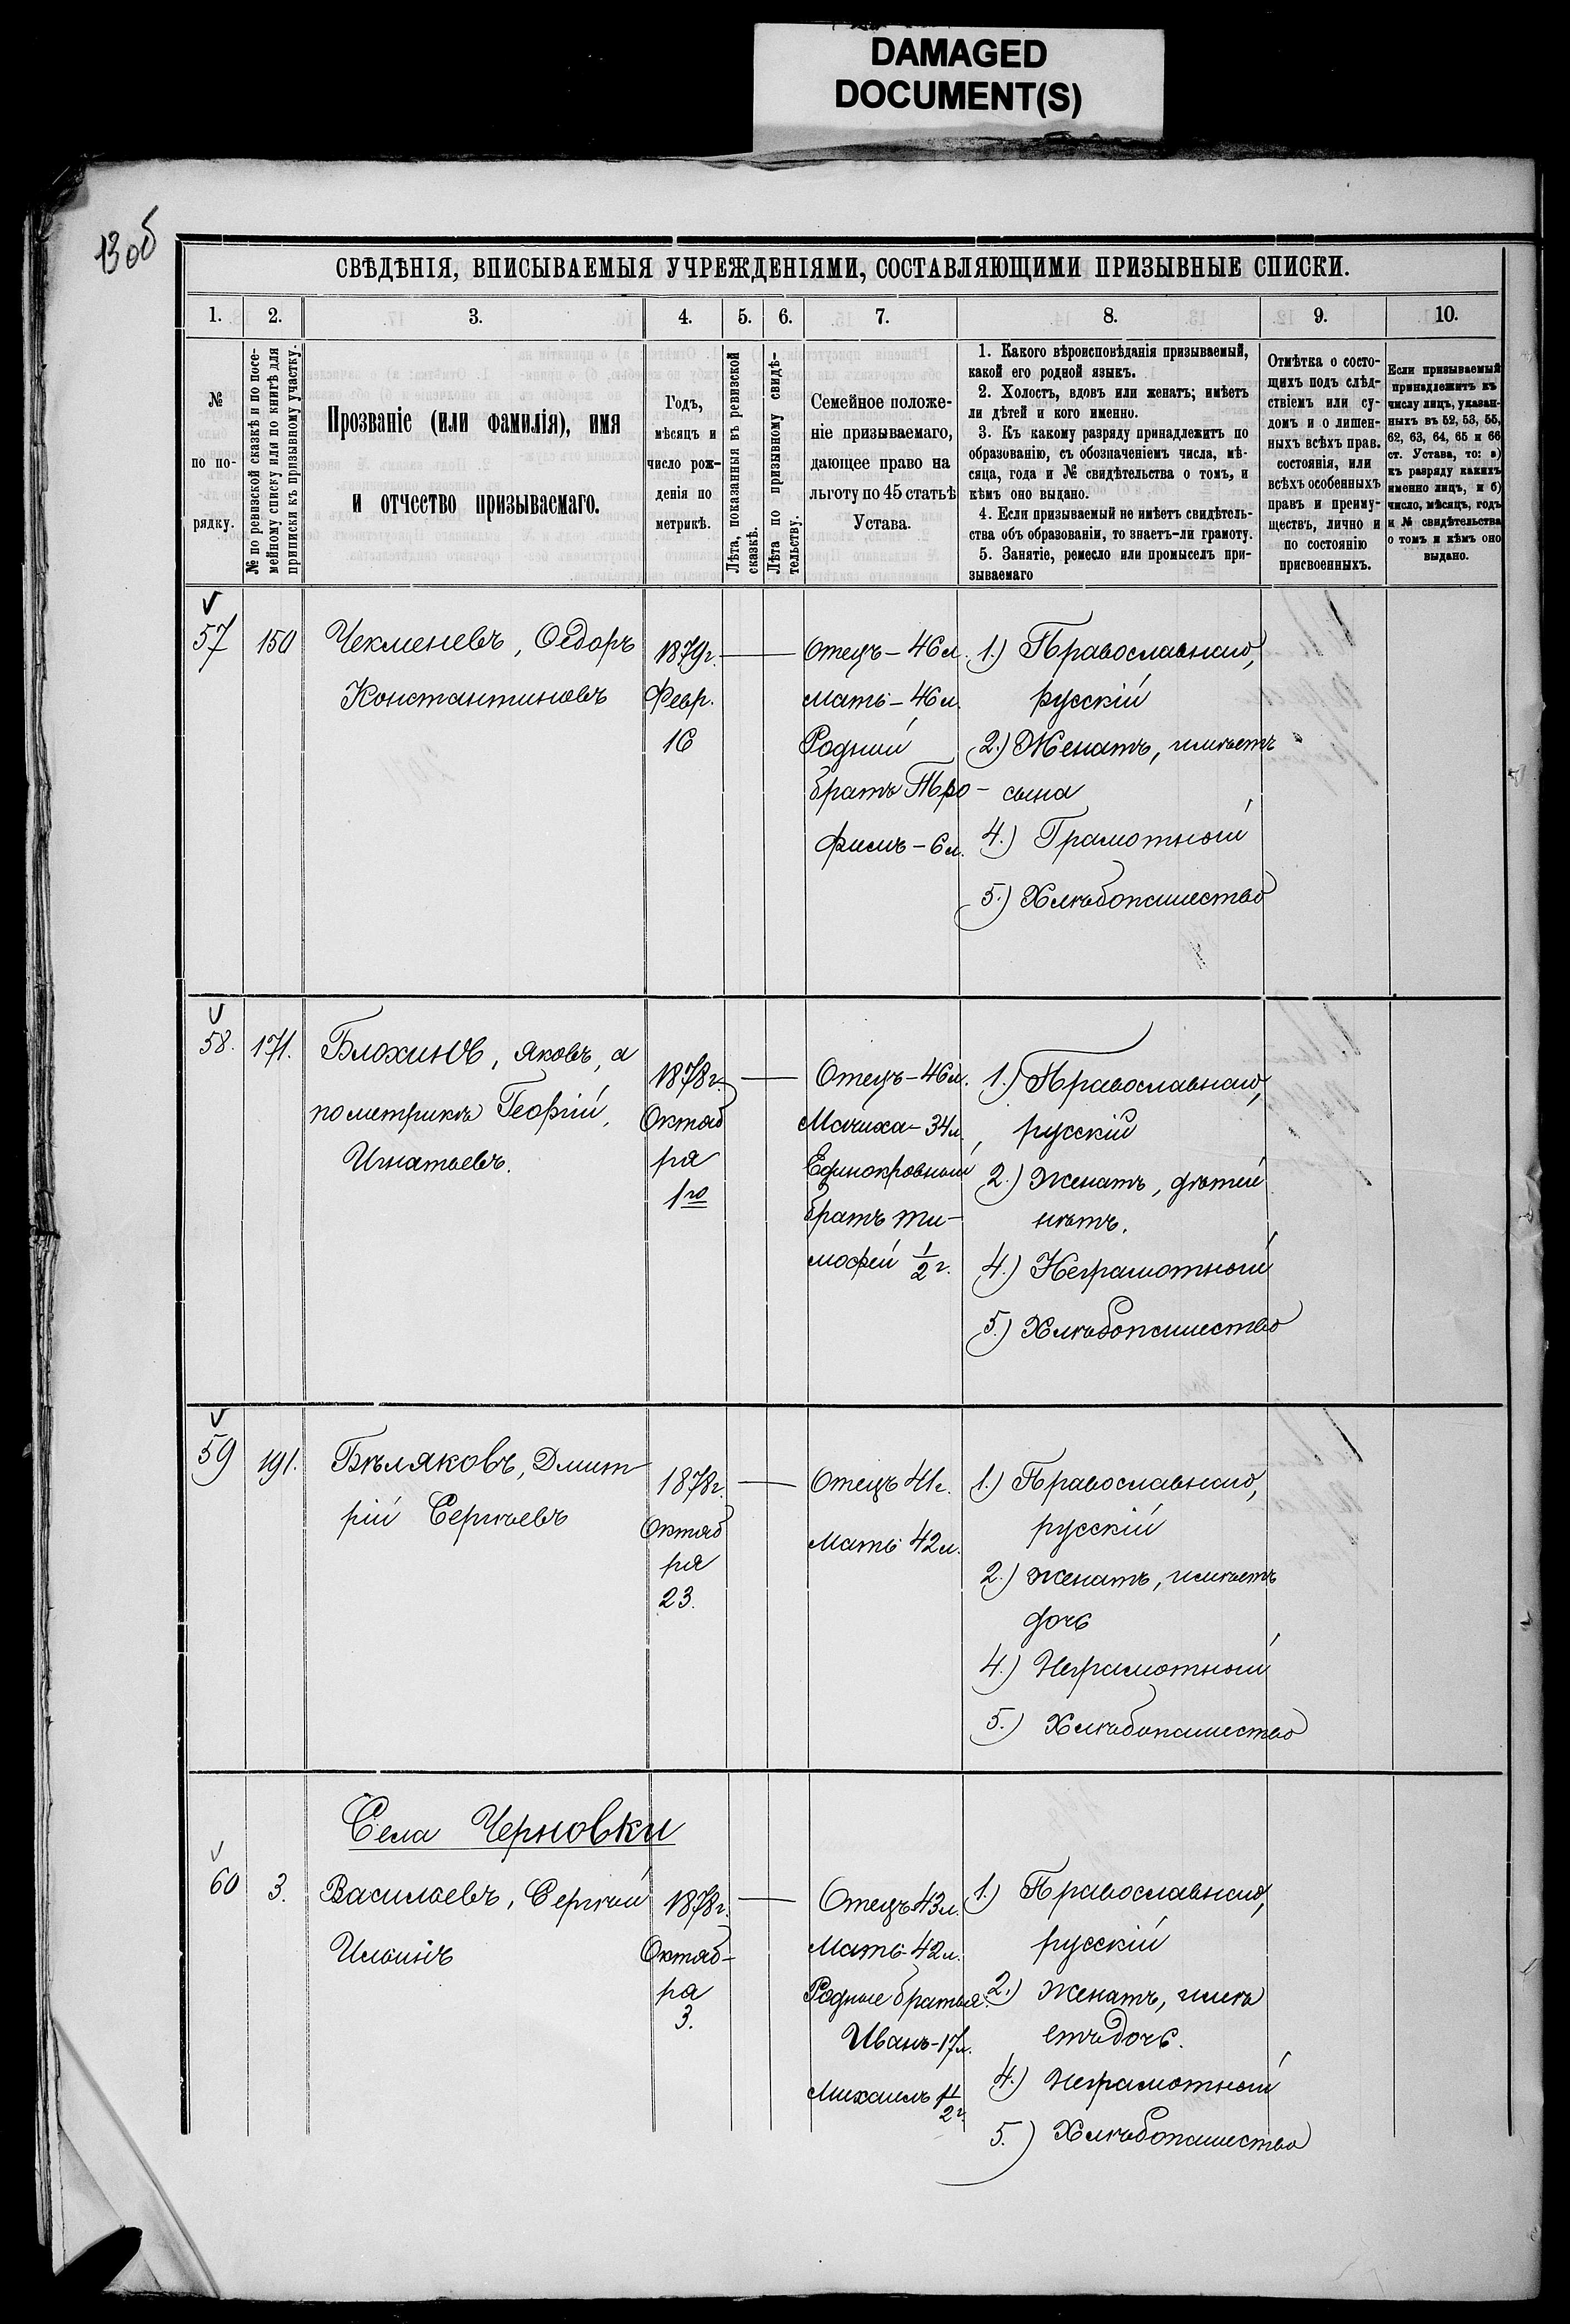 DAMAGED
DOCUMENT(S)
13об
СВѢДѢНІЯ, ВПИСЫВАЕМЫЯ УЧРЕЖДЕНІЯМИ, СОСТАВЛЯЮЩИМИ ПРИЗЫВНЫЕ СПИСКИ.
1. 2. 3. 4. 5. 6. 7. 8. 9. 10.
№
по по-
рядку.
№ по ревизской сказкѣ и по посе-
мейному списку или по книгѣ для
приписки къ призывному участку.
Прозваніе (или фамилія), имя
и отчество призываемаго.
Годъ,
мѣсяцъ и
число рож-
денія по
метрикѣ.
Лѣта, показанныя въ ревизской
сказкѣ.
Лѣта по призывному свидѣ-
тельству.
Семейное положе-
ніе призываемаго,
дающее право на
льготу по 45 статьѣ
Устава.
1. Какого вѣроисповѣданія призываемый,
какой его родной языкъ.
2. Холостъ, вдовъ или женатъ; имѣетъ
ли дѣтей и кого именно.
3. Къ какому разряду принадлежитъ по
образованію, съ обозначеніемъ числа, мѣ-
сяца, года и № свидѣтельства о томъ, и
кѣмъ оно выдано.
4. Если призываемый не имѣетъ свидѣтель-
ства объ образованіи, то знаетъ-ли грамоту.
5. Занятіе, ремесло или промыселъ при-
зываемаго
Отмѣтка о состо-
ящихъ подъ слѣд-
ствіемъ или су-
домъ и о лишен-
ныхъ всѣхъ прав.
состоянія, или
всѣхъ особенныхъ
правъ и преиму-
ществъ, лично и
по состоянію
присвоенныхъ.
Если призываемый
принадлежитъ къ
числу лицъ, указан-
ныхъ въ 52, 53, 55,
62, 63, 64, 65 и 66
ст. Устава, то: а)
къ разряду какихъ
именно лицъ, и б)
число, мѣсяцъ, годъ
и № свидѣтельства
о томъ и кѣмъ оно
выдано.
57
150
Чекменевъ, Ѳедоръ
Константиновъ
1879г.
Февр.
16
Отецъ – 46л.
Мать – 46л.
Родный
братъ Тро-
фимъ – 6л.
1.) Православнаго,
русскій
2.) Женатъ, имѣетъ
сына
4.) Грамотный
5.) Хлѣбопашество
58.
171.
Блохинъ, Яковъ, а
по метрикѣ Георгій,
Игнатьевъ.
1878г.
Октяб
ря
1го
Отецъ – 46л.
Мачиха – 34л.
Единокровный
братъ Ти-
мофей 1/2 г.
1.) Православнаго,
русскій
2.) Женатъ, дѣтей
нѣтъ.
4.) Неграмотный
5.) Хлѣбопашество
59
191.
Бѣляковъ, Дмит
рій Сергѣевъ
1878г.
Октяб
ря
23.
Отецъ 41г.
Мать 42л.
1.) Православнаго,
русскій
2.) Женатъ, имѣетъ
дочь
4.) Неграмотный
5.) Хлѣбопашество
Села Черновки
60
3.
Васильевъ, Сергѣй
Ильинъ
1878г.
Октяб-
ря
3.
Отецъ 43л.
Мать – 42л.
Родные братья:
Иванъ – 17л.
Михаилъ 1 1/2 г.
1.) Православнаго,
русскій
2.) Женатъ, имѣ
етъ дочь.
4.) Неграмотный
5.) Хлѣбопашество